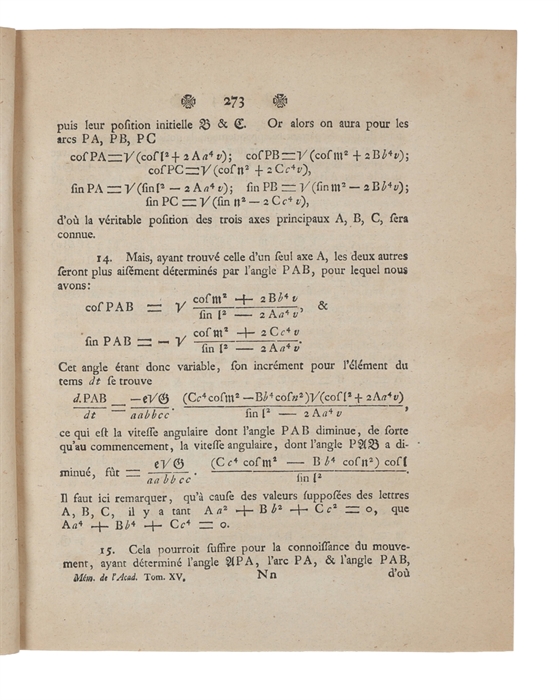 273
puis leur position initielle 𝔅 & ℭ. Or alors on aura pour les
arcs PA, PB, PC
cos PA = √(cos 𝔩² + 2 A a⁴ v); cos PB = √(cos 𝔪² + 2 B b⁴ v);
cos PC = √(cos 𝔫² + 2 C c⁴ v),
sin PA = √(sin 𝔩² — 2 A a⁴ v); sin PB = √(sin 𝔪² — 2 B b⁴ v);
sin PC = √(sin 𝔫² — 2 C c⁴ v),
d'où la véritable position des trois axes principaux A, B, C, sera
connue.
14. Mais, ayant trouvé celle d'un seul axe A, les deux autres
seront plus aisément déterminés par l'angle PAB, pour lequel nous
avons:
cos PAB = √ (cos 𝔪² + 2 B b⁴ v)/(sin 𝔩² — 2 A a⁴ v), &
sin PAB = — √ (cos 𝔫² + 2 C c⁴ v)/(sin 𝔩² — 2 A a⁴ v).
Cet angle étant donc variable, son incrément pour l'élément du
tems dt se trouve
d.PAB/dt = —𝔢√𝔊/aabbcc · (C c⁴ cos 𝔪² — B b⁴ cos 𝔫²) √(cos 𝔩² + 2 A a⁴ v)/(sin 𝔩² — 2 A a⁴ v),
ce qui est la vitesse angulaire dont l'angle PAB diminue, de sorte
qu'au commencement, la vitesse angulaire, dont l'angle P𝔄𝔅 a di-
minué, fût = 𝔢√𝔊/aabbcc · (C c⁴ cos 𝔪² — B b⁴ cos 𝔫²) cos 𝔩/sin 𝔩².
Il faut ici remarquer, qu'à cause des valeurs supposées des lettres
A, B, C, il y a tant A a² + B b² + C c² = 0, que
A a⁴ + B b⁴ + C c⁴ = 0.
15. Cela pourroit suffire pour la connoissance du mouve-
ment, ayant déterminé l'angle 𝔄PA, l'arc PA, & l'angle PAB,
Mém. de l'Acad. Tom. XV. N n d'où